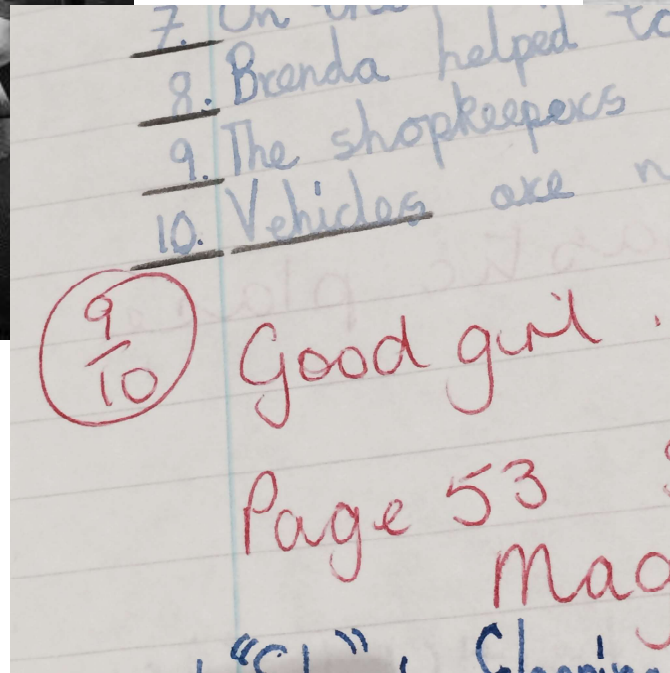 7. On the
8. Brenda helped to
9. The shopkeepers
10. Vehicles are n
9/10 Good girl.
Page 53
Mag